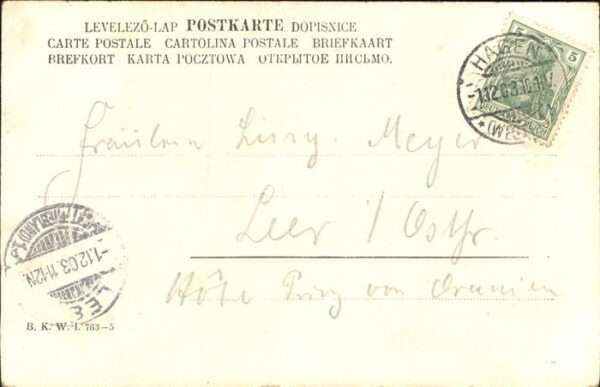 LEVELEZŐ-LAP POSTKARTE DOPISNICE
CARTE POSTALE CARTOLINA POSTALE BRIEFKAART
BREFKORT KARTA POCZTOWA ОТКРЫТОЕ ПИСЬМО.
5 5
HAGEN
1.12.03.10-11
(WES
Fräulein Lissy. Meyer
Leer i/Ostfr.
Höhe Prinz von Oranien
1.12.03.11-12N
LEE
B. K. W. I. 763-5